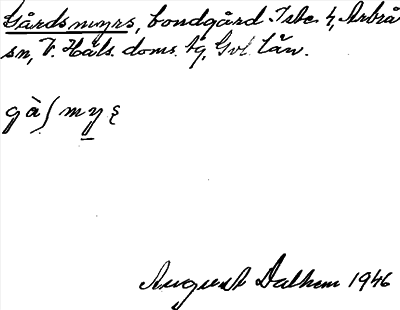 Gårdsmyrs, bondgård Isbo h, Arbrå
sn, V. Häls. doms. tg, Gvl. län.
gàʃ my̱ ʂ
August Dalhem 1946